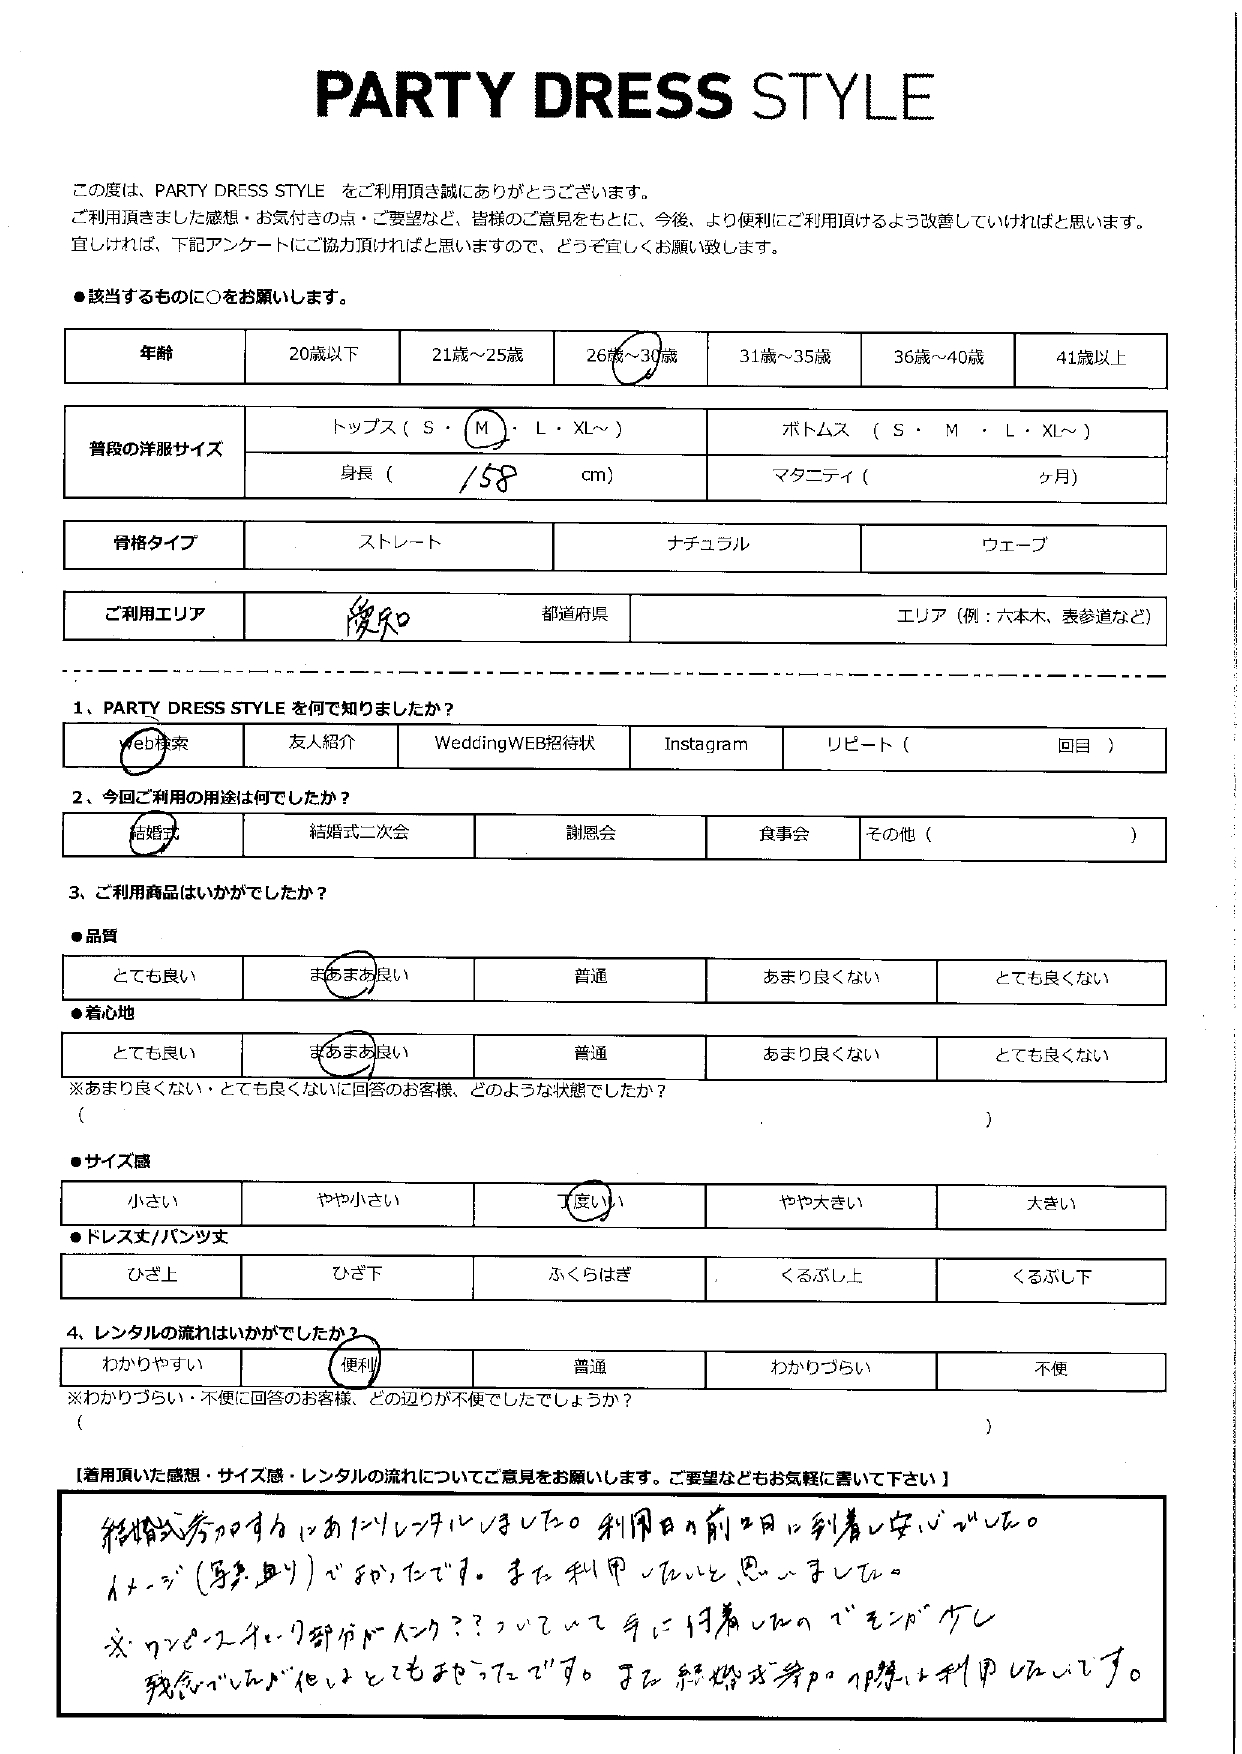 PARTY DRESS STYLE
この度は、PARTY DRESS STYLE をご利用頂き誠にありがとうございます。
ご利用頂きました感想・お気付きの点・ご要望など、皆様のご意見をもとに、今後、より便利にご利用頂けるよう改善していければと思います。
宜しければ、下記アンケートにご協力頂ければと思いますので、どうぞ宜しくお願い致します。
●該当するものに○をお願いします。
年齢 20歳以下 21歳～25歳 26歳～30歳 31歳～35歳 36歳～40歳 41歳以上
普段の洋服サイズ トップス ( S ・ M ・ L ・ XL～ ) ボトムス ( S ・ M ・ L ・ XL～ )
身長 ( 158 cm) マタニティ ( ヶ月)
骨格タイプ ストレート ナチュラル ウェーブ
ご利用エリア 愛知 都道府県 エリア（例：六本木、表参道など）
1、PARTY DRESS STYLE を何で知りましたか？
web検索 友人紹介 WeddingWEB招待状 Instagram リピート ( 回目 )
2、今回ご利用の用途は何でしたか？
結婚式 結婚式二次会 謝恩会 食事会 その他 ( )
3、ご利用商品はいかがでしたか？
●品質
とても良い まあまあ良い 普通 あまり良くない とても良くない
●着心地
とても良い まあまあ良い 普通 あまり良くない とても良くない
※あまり良くない・とても良くないに回答のお客様、どのような状態でしたか？
( )
●サイズ感
小さい やや小さい 丁度いい やや大きい 大きい
●ドレス丈/パンツ丈
ひざ上 ひざ下 ふくらはぎ くるぶし上 くるぶし下
4、レンタルの流れはいかがでしたか？
わかりやすい 便利 普通 わかりづらい 不便
※わかりづらい・不便に回答のお客様、どの辺りが不便でしたでしょうか？
( )
【着用頂いた感想・サイズ感・レンタルの流れについてご意見をお願いします。ご要望などもお気軽に書いて下さい】
結婚式参加するにあたりレンタルしました。利用日の前2日に到着し安心でした。
イメージ(写真通り)でよかったです。また利用したいと思いました。
※ワンピースチャック部分がインク??ついていて手に付着したのでそこが少し
残念でしたが他はとてもよかったです。また結婚式参加の際は利用したいです。